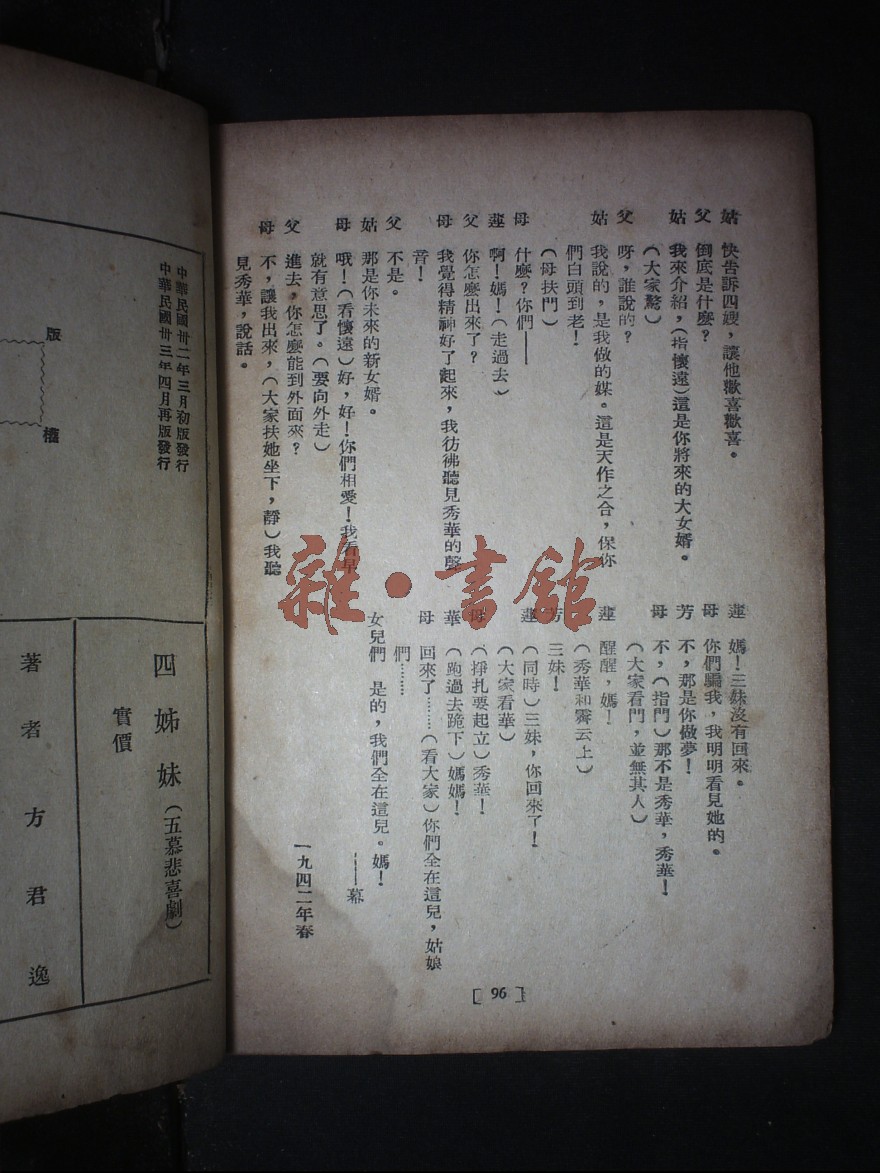 姑　快告訴四嫂，讓他歡喜歡喜。
父　倒底是什麽？
姑　我來介紹，（指懷遠）這是你將來的大女婿。
（大家驚）
父　呀，誰說的？
姑　我說的，是我做的媒。這是天作之合，保你
們白頭到老！
（母扶門）
母　什麽？你們——
蓮　啊！媽！（走過去）
父　你怎麽出來了？
母　我覺得精神好了起來，我彷彿聽見秀華的聲
音！
父　不是。
姑　那是你未來的新女婿。
母　哦！（看懷遠）好，好！你們相愛！我看早
就有意思了。（要向外走）
父　進去，你怎麽能到外面來？
母　不，讓我出來，（大家扶她坐下，靜）我聽
見秀華，說話。
蓮　媽！三妹沒有回來。
母　你們騙我，我明明看見她的。
芳　不，那是你做夢！
母　不，（指門）那不是秀華，秀華！
（大家看門，並無其人）
蓮　醒醒，媽！
（秀華和霽云上）
芳　三妹！
蓮　（同時）三妹，你回來了！
（大家看華）
母　（掙扎要起立）秀華！
華　（跑過去跪下）媽媽！
母　回來了……（看大家）你們全在這兒，姑娘
們……
女兒們　是的，我們全在這兒。媽！
——幕
一九四二年春
[ 96 ]
版
權
中華民國卅二年三月初版發行
中華民國卅三年四月再版發行
四姊妹（五幕悲喜劇）
實價
著者方君逸
雜·書館